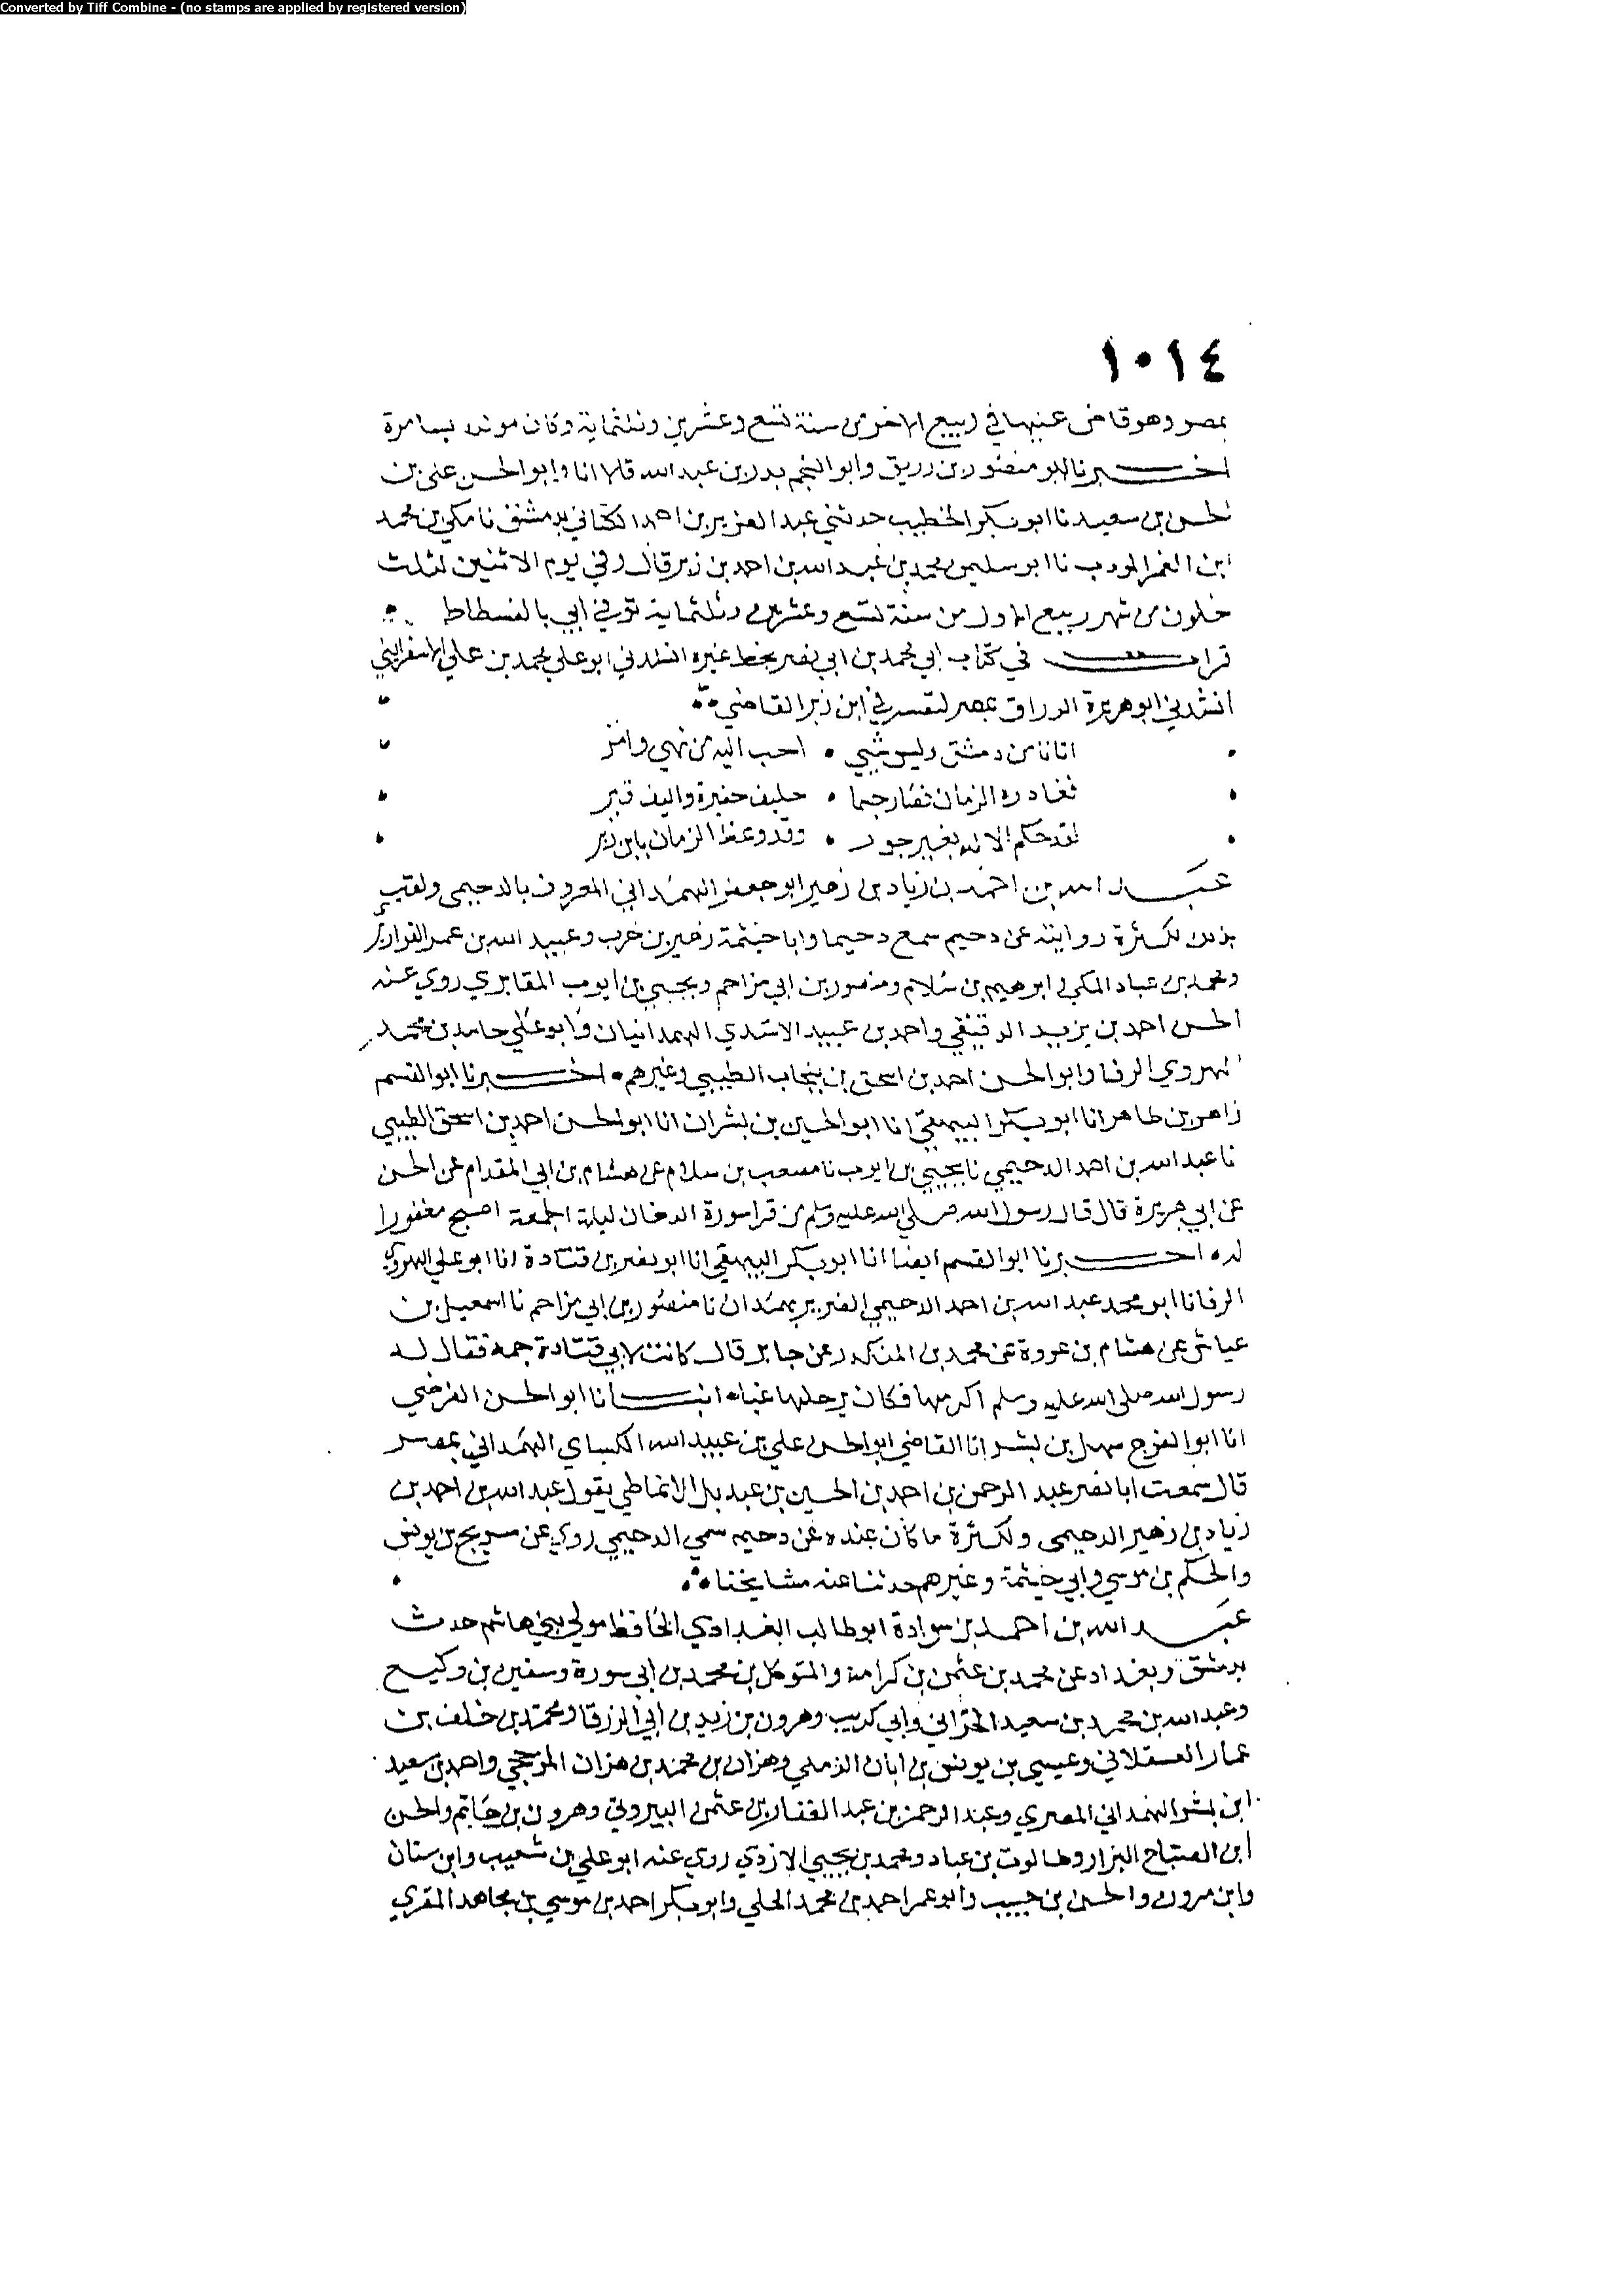 Converted by Tiff Combine - (no stamps are applied by registered version)
١٠١٤
بمصر وهو قاض عليها في ربيع الاخر من سنة تسع وعشرين وثلثماية وكان مولده بسامرة
اخبرنا ابو منصور بن زريق وابو النجم بدر بن عبد الله قالا انا وابو الحسن علي بن
الحسن بن سعيد نا ابو بكر الخطيب حدثني عبد العزيز بن احمد الكتاني بدمشق نا مكي بن محمد
ابن الغمر المودب نا ابو سليمن محمد بن عبد الله بن احمد بن زبر قال وفي يوم الاثنين لثلث
خلون من شهر ربيع الاول من سنة تسع وعشرين وثلثماية توفي ابي بالفسطاط
قرات في كتاب ابي محمد بن ابي نصر بخط غيره انشدني ابو علي محمد بن علي الاسفرايني
انشدني ابو هريرة الوراق بمصر لنفسه في ابن زبر القاضي
اتانا من دمشق وليس شيي احب اليه من نهي وامر
فغادره الزمان فصار جما حليف حفيرة واليف قبر
لقد حكم الاله بغير جور وقد وعظ الزمان بابن زبر
عبد الله بن احمد بن زياد بن زهير ابو جعفر الهمداني المعروف بالدحيمي ولقب
بذلك لكثرة روايته عن دحيم سمع دحيما وابا خيثمة زهير بن حرب وعبيد الله بن عمر القواريري
ومحمد بن عباد المكي وابراهيم بن سلام ومنصور بن ابي مزاحم ويحيى بن ايوب المقابري روي عنه
الحسن احمد بن يزيد الدقيقي واحمد بن عبيد الاسدي الهمدانيان وابو علي حامد بن محمد
الهروي الرفا وابو الحسن احمد بن اسحق بن بنجاب الطيبي وغيرهم اخبرنا ابو القسم
زاهر بن طاهر انا ابو بكر البيهقي انا ابو الحسين بن بشران انا ابو الحسن احمد بن اسحق الطيبي
نا عبد الله بن احمد الدحيمي نا يحيي بن ايوب نا مصعب بن سلام عن هشام بن ابي المقدام عن الحسن
عن ابي هريرة قال قال رسول الله صلي الله عليه وسلم من قرا سورة الدخان ليلة الجمعة اصبح مغفورا
له اخبرنا ابو القسم ايضا انا ابو بكر البيهقي انا ابو نصر بن قتادة انا ابو علي الهروي
الرفا نا ابو محمد عبد الله بن احمد الدحيمي الضرير بهمدان نا منصور بن ابي مزاحم نا اسمعيل بن
عياش عن هشام بن عروة عن محمد بن المنكدر عن جابر قال كانت لابي قتادة جمه فقال له
رسول الله صلى الله عليه وسلم اكرمها فكان يرجلها غبا انبانا ابو الحسن الفرضي
انا ابو الفرج سهل بن بشر انا القاضي ابو الحسن علي بن عبيد الله الكسائي الهمداني بمصر
قال سمعت ابا نصر عبد الرحمن بن احمد بن الحسين بن عبد الانماطي يقول عبد الله بن احمد بن
زياد بن زهير الدحيمي ولكثرة ما كان عنده عن دحيم سمي الدحيمي روي عن سريج بن يونس
والحكم بن موسي وابي خيثمة وغيرهم حدثنا عنه مشايخنا
عبد الله بن احمد بن سوادة ابو طالب البغدادي الحافظ مولي بني هاشم حدث
بدمشق وبغداد عن محمد بن عثمن بن كرامة والمتوكل بن محمد بن ابي سورة وسفين بن وكيع
وعبد الله بن محمد بن سعيد الحراني وابي كريب وهرون بن زيد بن ابي الزرقا ومحمد بن خلف بن
عمار العسقلاني وعيسي بن يونس بن ابان الرملي وهزان بن محمد بن هزان المذحجي واحمد بن سعيد
ابن بشر الهمداني المصري وعبد الرحمن بن عبد الغفار بن عثمن البيروتي وهرون بن حاتم والحسن
ابن الصباح البزار وطالوت بن عباد ومحمد بن يحيي الازدي روي عنه ابو علي بن شعيب وابن سنان
وابن مرون والحسن بن حبيب وابو عمر احمد بن محمد الحلي وابو بكر احمد بن موسي بن مجاهد المقري